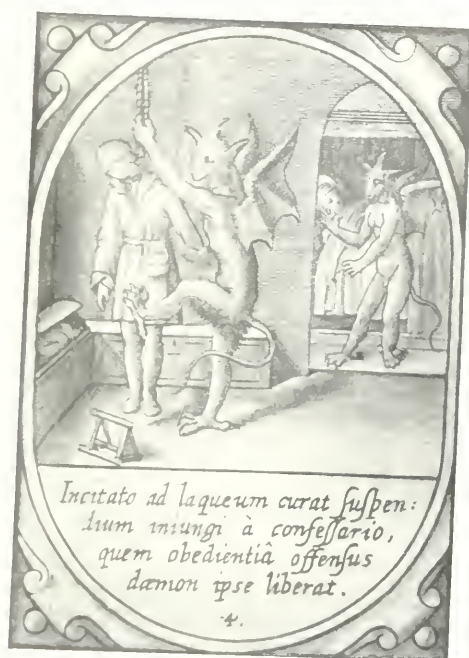 Incitato ad laqueum curat ſuſpen:
dium iniungi à confeſſario,
quem obedientiâ offenſus
dæmon ipse liberat.
·4·